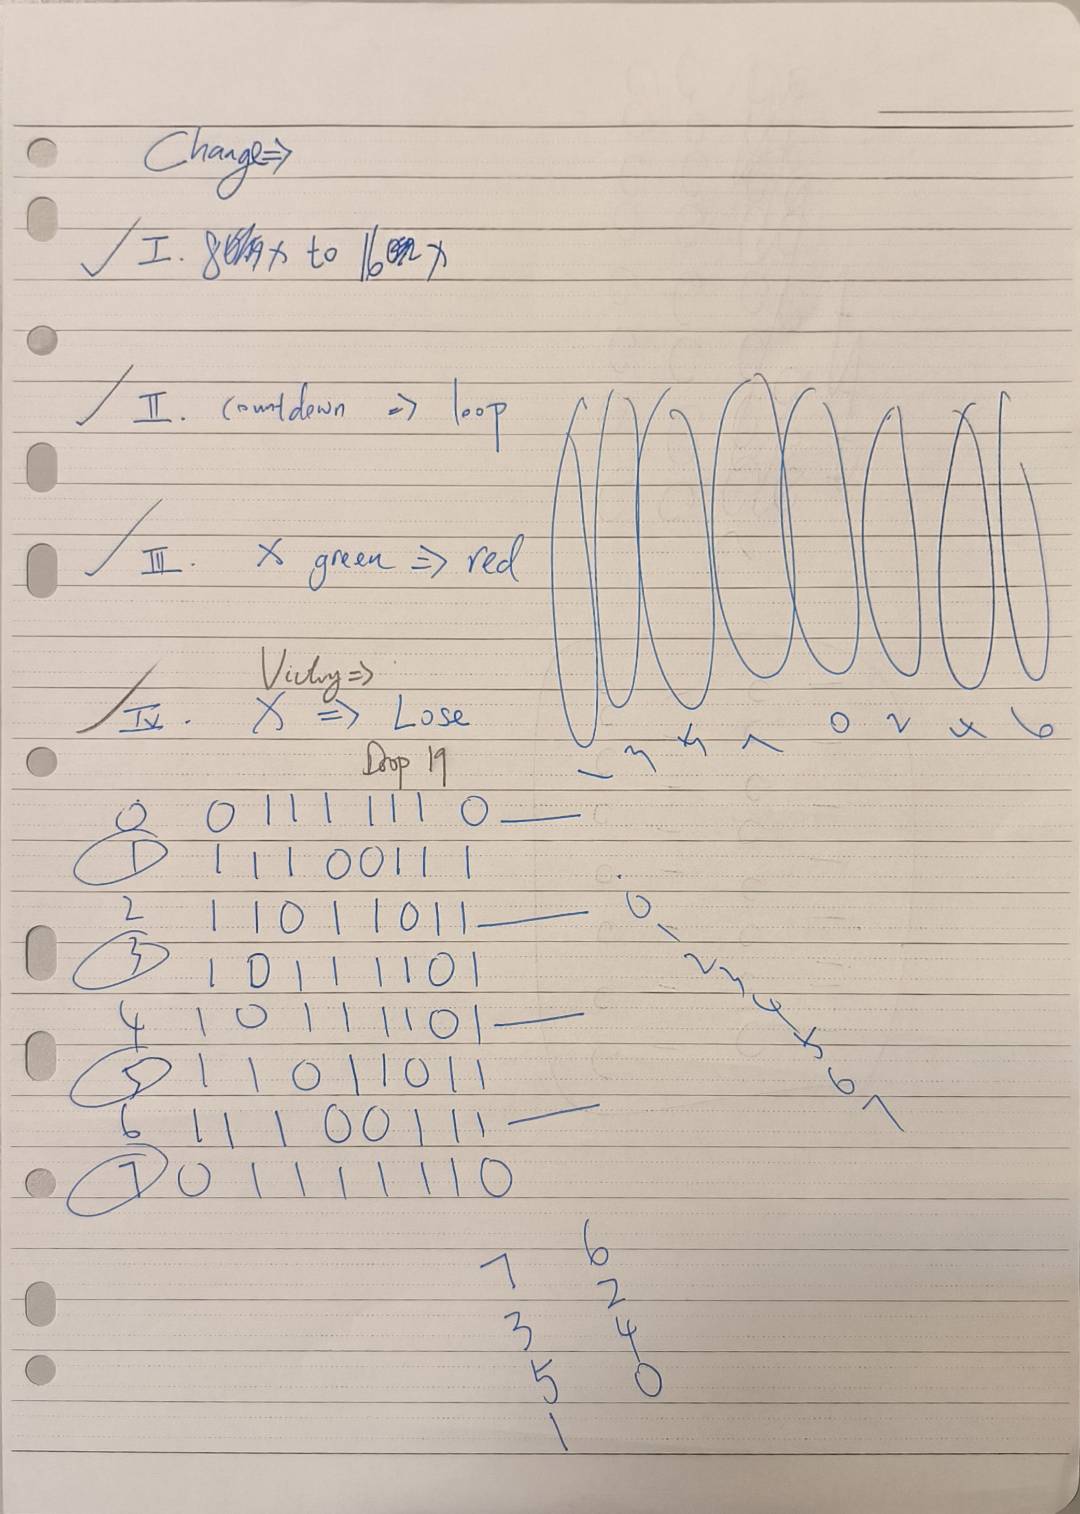 Change⇒
✓ I. 8 x to 16 x
✓ II. countdown ⇒ loop
✓ III. x green ⇒ red
Victory⇒
✓ IV. X ⇒ Lose
1 3 5 7 0 2 4 6
Drop 19
0 0 1 1 1 1 1 1 0
1 1 1 1 0 0 1 1 1
2 1 1 0 1 1 0 1 1
3 1 0 1 1 1 1 0 1
4 1 0 1 1 1 1 0 1
5 1 1 0 1 1 0 1 1
6 1 1 1 0 0 1 1 1
7 0 1 1 1 1 1 1 0
0 1 2 3 4 5 6 7
7 6
3 2
5 4
1 0